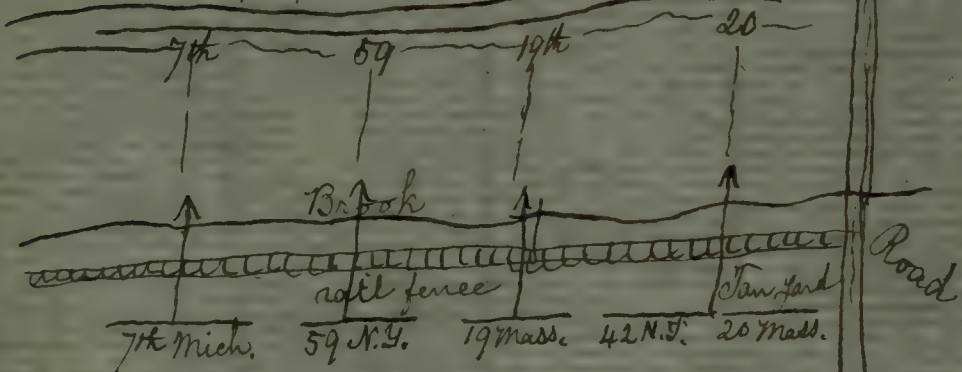 7th 59 19th 20
Brook
Road
rail fence
Tan Yard
7th Mich. 59 N.Y. 19 Mass. 42 N.Y. 20 Mass.